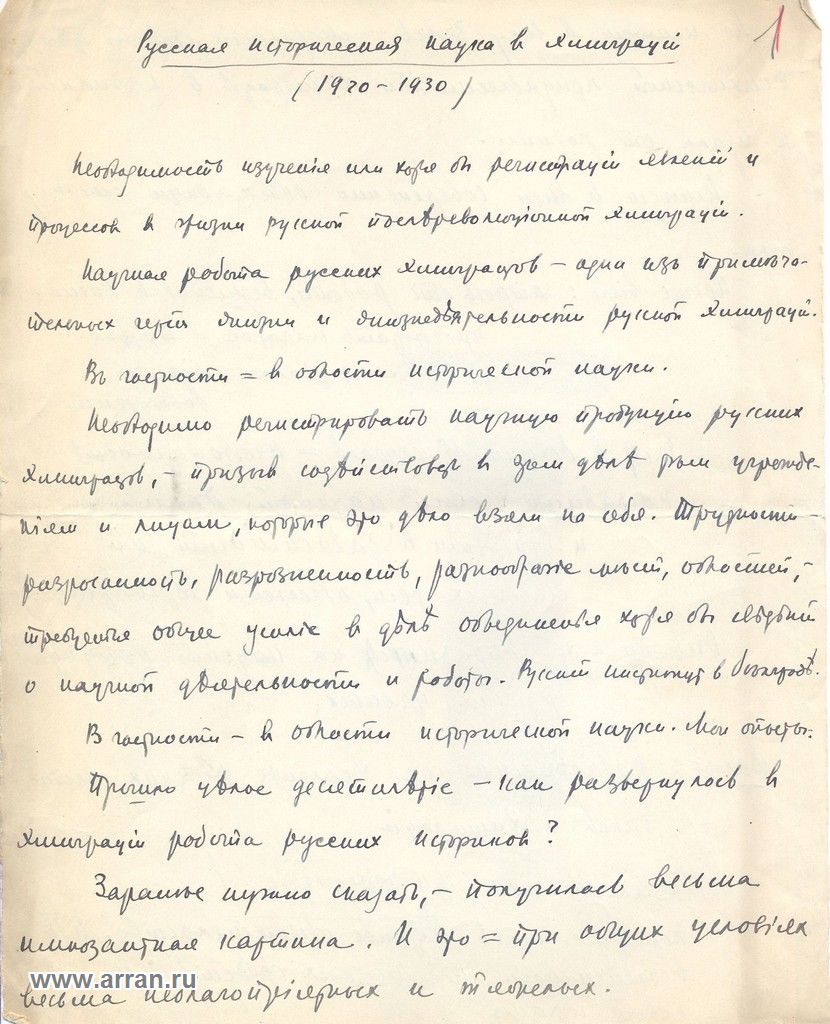 1
Русская историческая наука в эмиграціи
(1920–1930)
Необходимость изученія или хотя бы регистраціи явленій и
процессов в жизни русской послѣреволюціонной эмиграціи.
Научная работа русских эмигрантов – одна изъ примѣча-
тельных черт жизни и жизнедѣятельности русской эмиграціи.
Въ частности = в области исторической науки.
Необходимо регистрировать научную продукцію русских
эмигрантов, – призыв содѣйствовать в этом дѣлѣ тѣм учрежде-
ніям и лицам, которые это дѣло взяли на себя. Трудности –
разбросанность, разрозненность, разнообразіе мѣст, областей, –
требуется общее усиліе в дѣлѣ объединенья хотя бы свѣдѣній
о научной дѣятельности и работы. Русскій институт в Бѣлградѣ.
В частности – в области исторической науки. Мои опыты.
Прошло цѣлое десятилѣтіе – как развернулось в
эмиграціи работа русских историков?
Заранѣе нужно сказать, – получилась весьма
импозантная картина. И это = при общих условіях
весьма неблагопріятных и тяжелых.
www.arran.ru